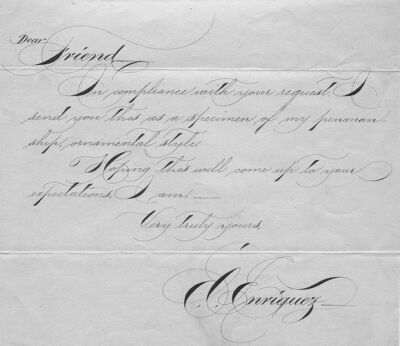 Dear
Friend
In compliance with your request, I
send you this as a specimen of my penman-
ship, ornamental style.
Hoping this will come up to your
expectations, I am,—
Very truly yours,
E. C. Enriquez—